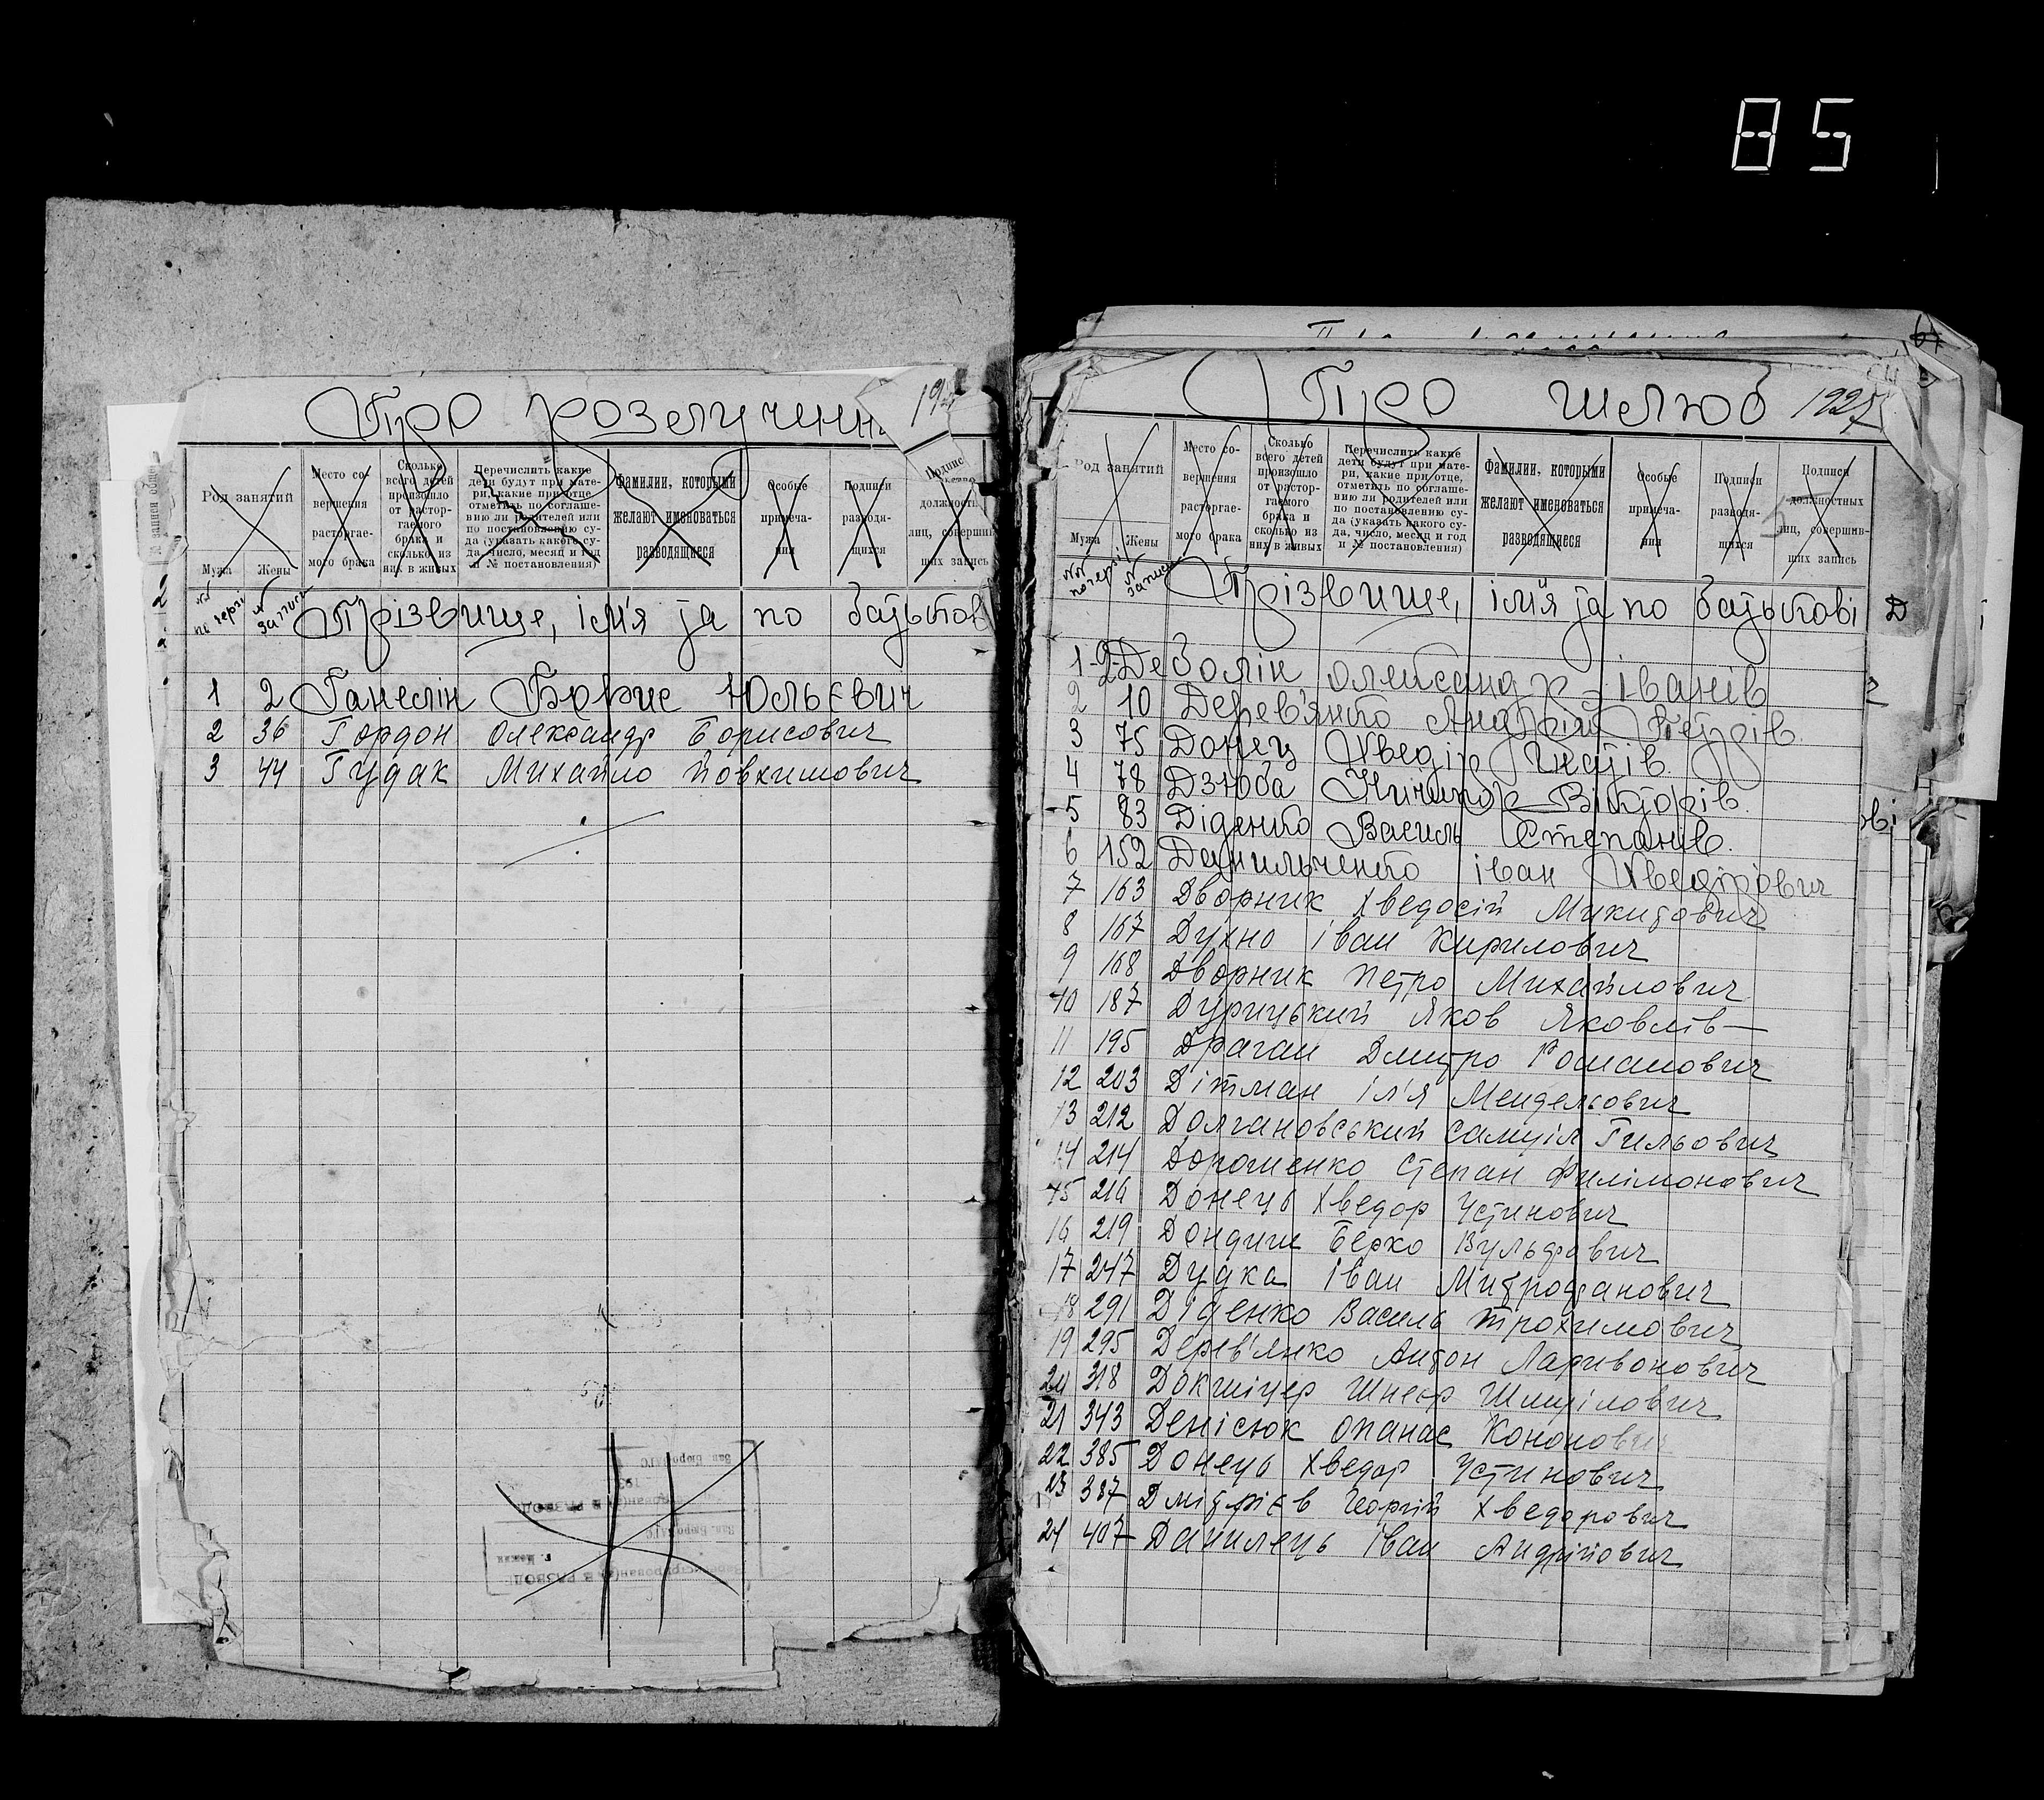 85
Про розлучення 192
Род занятий
Мужа Жены
Место совершения расторгаемого брака
Сколько всего детей произошло от расторгаемого брака и сколько из них в живых
Перечислить какие дети будут при матери, какие при отце, отметить по соглашению ли родителей или по постановлению суда (указать какого суда, число, месяц и год и № постановления)
Фамилии, которыми желают именоваться разводящиеся
Особые примечания
Подписи разводящихся
Подписи должностных лиц, совершивших запись
№№ по черзі № запису Прізвище, ім'я та по батькові
1 2 Ганелін Борис Юльєвич
2 36 Гордон Олександр Борисович
3 44 Гудак Михайло Йовхимович
Про шлюб 1927
Род занятий
Мужа Жены
Место совершения расторгаемого брака
Сколько всего детей произошло от расторгаемого брака и сколько из них в живых
Перечислить какие дети будут при матери, какие при отце, отметить по соглашению ли родителей или по постановлению суда (указать какого суда, число, месяц и год и № постановления)
Фамилии, которыми желают именоваться разводящиеся
Особые примечания
Подписи разводящихся
Подписи должностных лиц, совершивших запись
№№ по черзі № запису Прізвище, ім'я та по батькові Д
1 2 Деволін Олександр Іванів
2 10 Дерев'янко Андрій Петрів
3 75 Донец Хведір Гнатів
4 78 Дзюба Ничипор Вікторів.
5 83 Діденко Василь Степанів.
6 152 Данильченко Іван Хведірович
7 163 Дворник Хведосій Микитович
8 167 Духно Іван Кирилович
9 168 Дворник Петро Михайлович
10 187 Дурицький Яков Яковлів
11 195 Драган Дмитро Романович
12 203 Дітман Ілʼя Мендельович
13 212 Долгановський Самуіл Гильович
14 214 Дороменко Степан Филімонович
15 216 Донець Хведор Устинович
16 219 Дондиш Берко Вульфович
17 247 Дудка Іван Митрофанович
18 291 Діденко Василь Трохимович
19 295 Дерев'янко Антон Ларивонович
20 318 Докшіцер Шнеєр Шмуілович
21 343 Денісюк Опанас Кононович
22 385 Донець Хведор Устинович
23 387 Дмітрієв Георгій Хведорович
24 407 Данилець Іван Андрійович